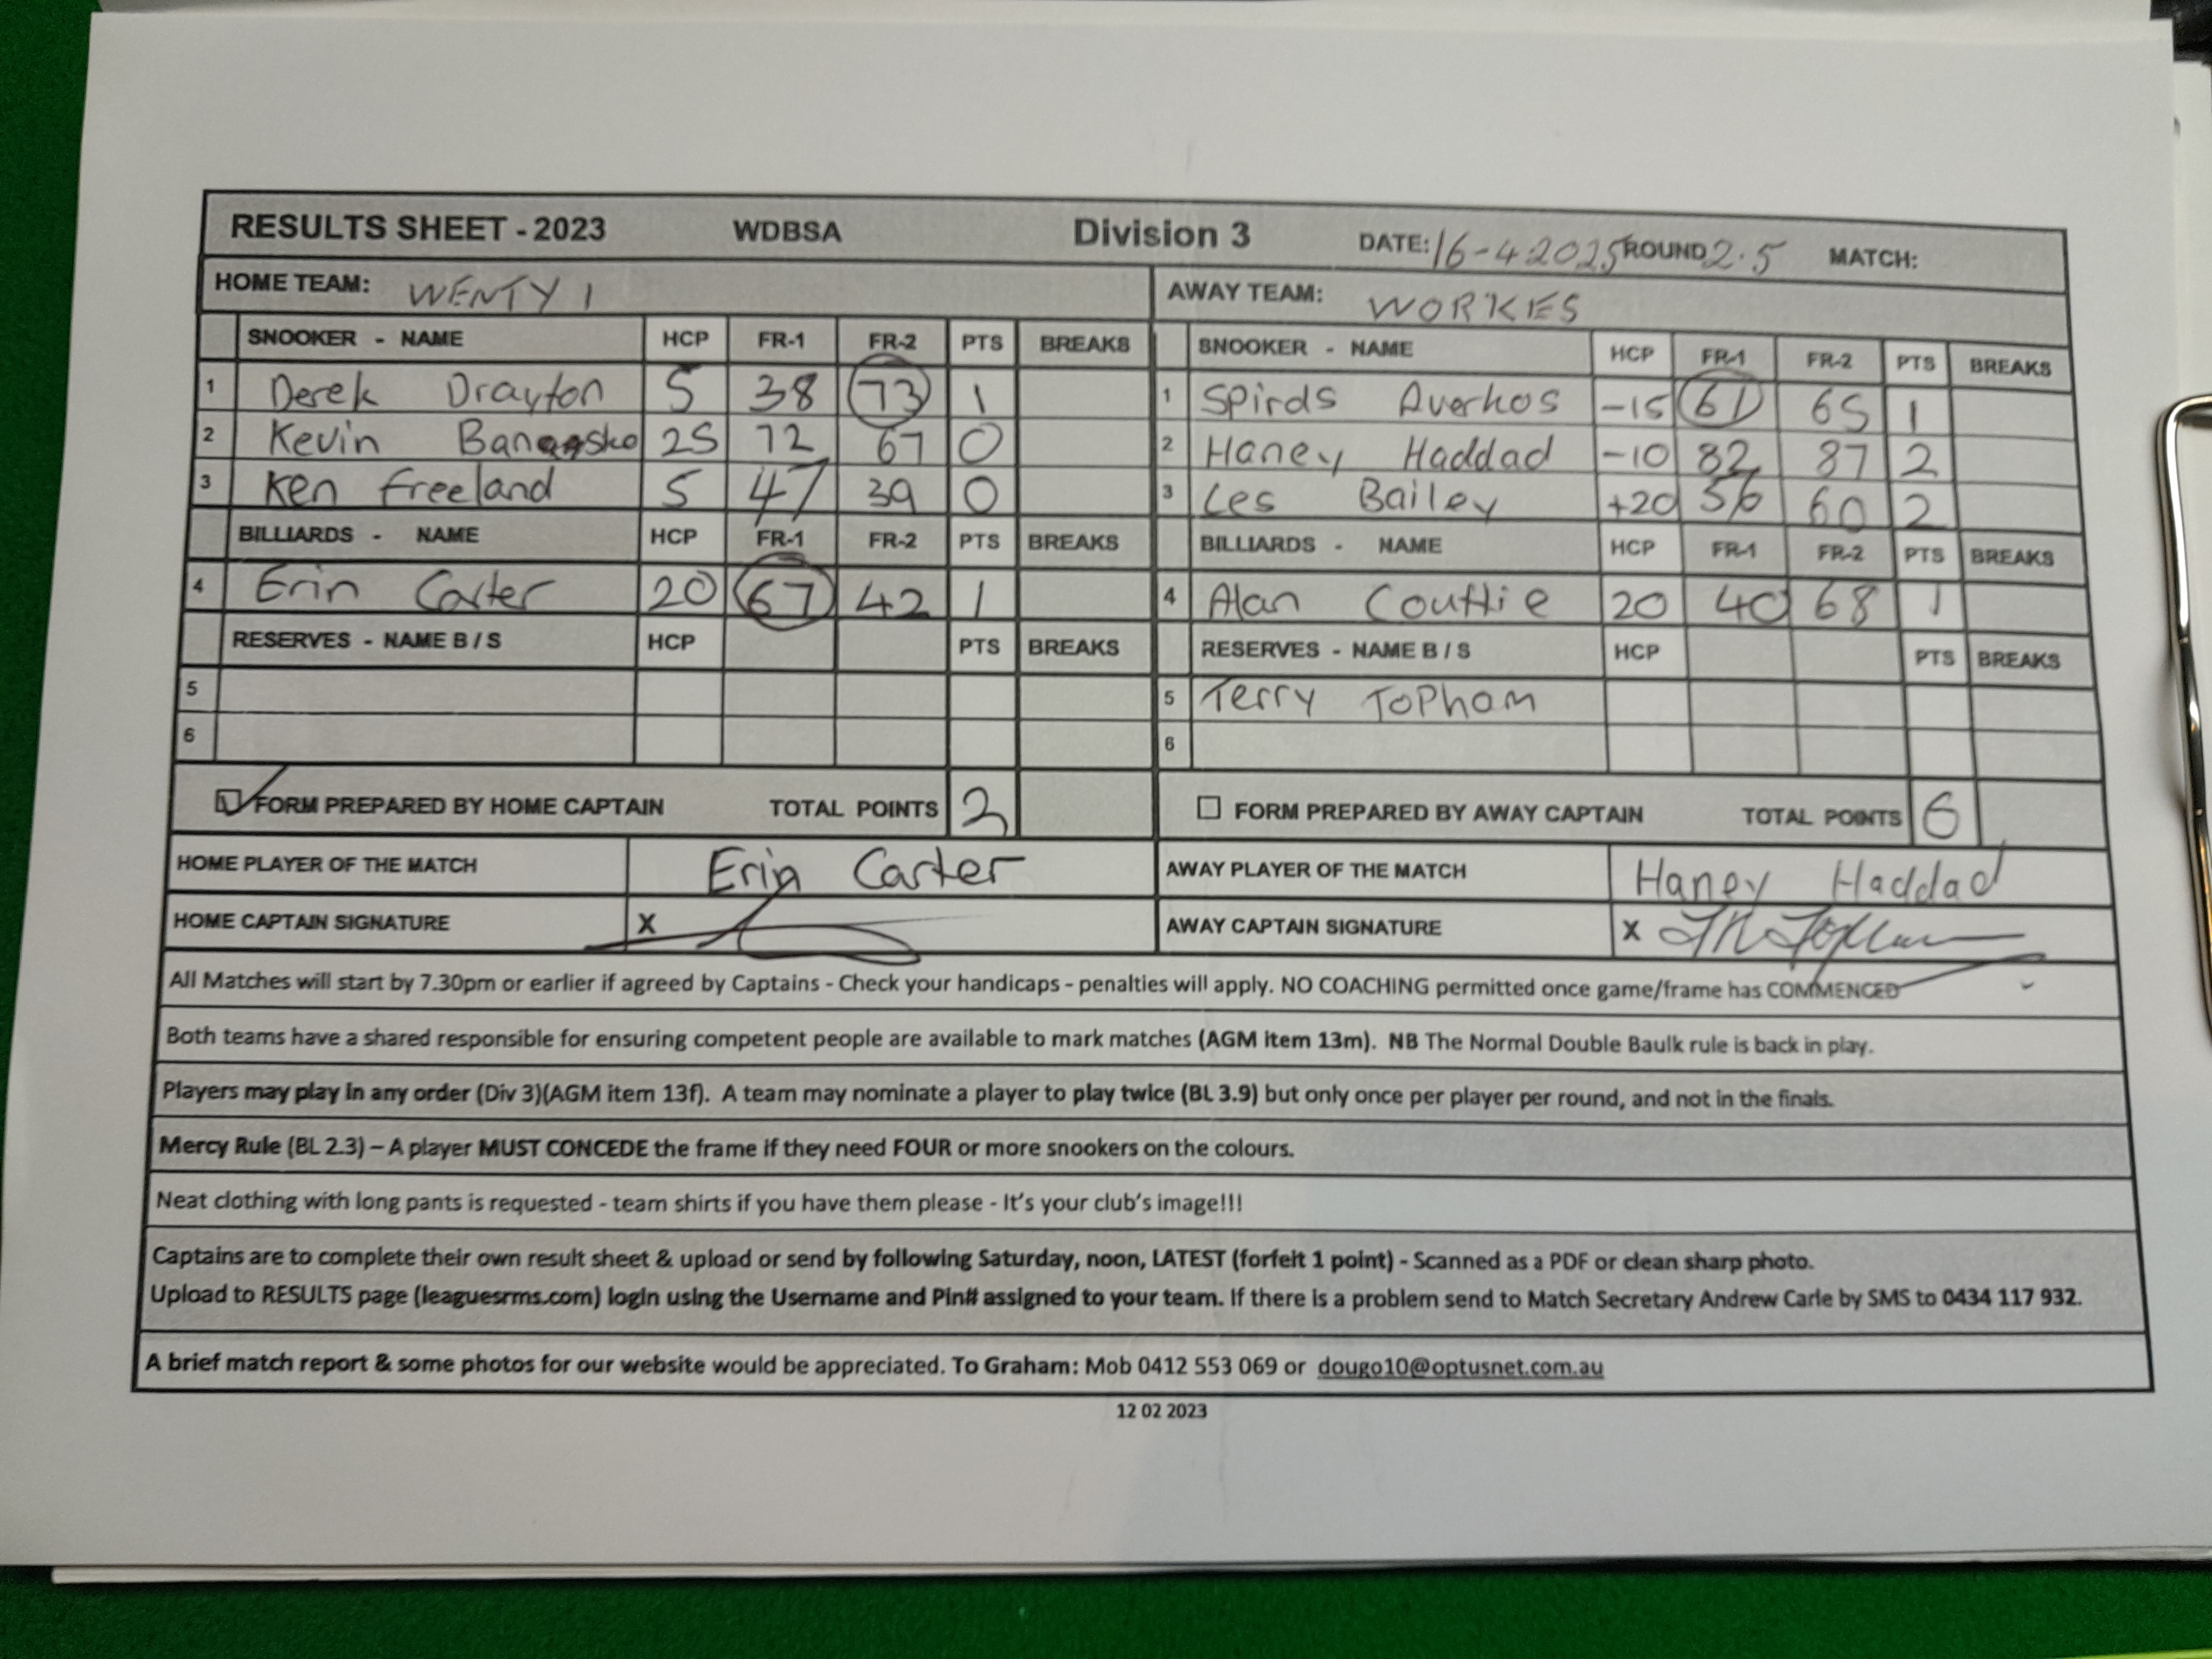 RESULTS SHEET - 2023 WDBSA Division 3 DATE: 16-4 2025 ROUND 2.5 MATCH:
HOME TEAM: WENTY 1 AWAY TEAM: WORKIES
SNOOKER - NAME HCP FR-1 FR-2 PTS BREAKS SNOOKER - NAME HCP FR-1 FR-2 PTS BREAKS
1 Derek Drayton 5 38 73 1 1 Spirds Averkos -15 61 65 1
2 Kevin 25 72 67 0 2 Haney Haddad -10 82 87 2
3 Ken Freeland 5 47 39 0 3 Les Bailey +20 56 60 2
BILLIARDS - NAME HCP FR-1 FR-2 PTS BREAKS BILLIARDS - NAME HCP FR-1 FR-2 PTS BREAKS
4 Erin Carter 20 67 42 1 4 Alan Couttie 20 40 68 1
RESERVES - NAME B / S HCP PTS BREAKS RESERVES - NAME B / S HCP PTS BREAKS
5 5 Terry Topham
6 6
FORM PREPARED BY HOME CAPTAIN TOTAL POINTS 2 FORM PREPARED BY AWAY CAPTAIN TOTAL POINTS 6
HOME PLAYER OF THE MATCH Erin Carter AWAY PLAYER OF THE MATCH Haney Haddad
HOME CAPTAIN SIGNATURE X AWAY CAPTAIN SIGNATURE X
All Matches will start by 7.30pm or earlier if agreed by Captains - Check your handicaps - penalties will apply. NO COACHING permitted once game/frame has COMMENCED
Both teams have a shared responsible for ensuring competent people are available to mark matches (AGM item 13m). NB The Normal Double Baulk rule is back in play.
Players may play in any order (Div 3)(AGM item 13f). A team may nominate a player to play twice (BL 3.9) but only once per player per round, and not in the finals.
Mercy Rule (BL 2.3) – A player MUST CONCEDE the frame if they need FOUR or more snookers on the colours.
Neat clothing with long pants is requested - team shirts if you have them please - It's your club's image!!!
Captains are to complete their own result sheet & upload or send by following Saturday, noon, LATEST (forfeit 1 point) - Scanned as a PDF or clean sharp photo.
Upload to RESULTS page (leaguesrms.com) login using the Username and Pin# assigned to your team. If there is a problem send to Match Secretary Andrew Carle by SMS to 0434 117 932.
A brief match report & some photos for our website would be appreciated. To Graham: Mob 0412 553 069 or dougo10@optusnet.com.au
12 02 2023